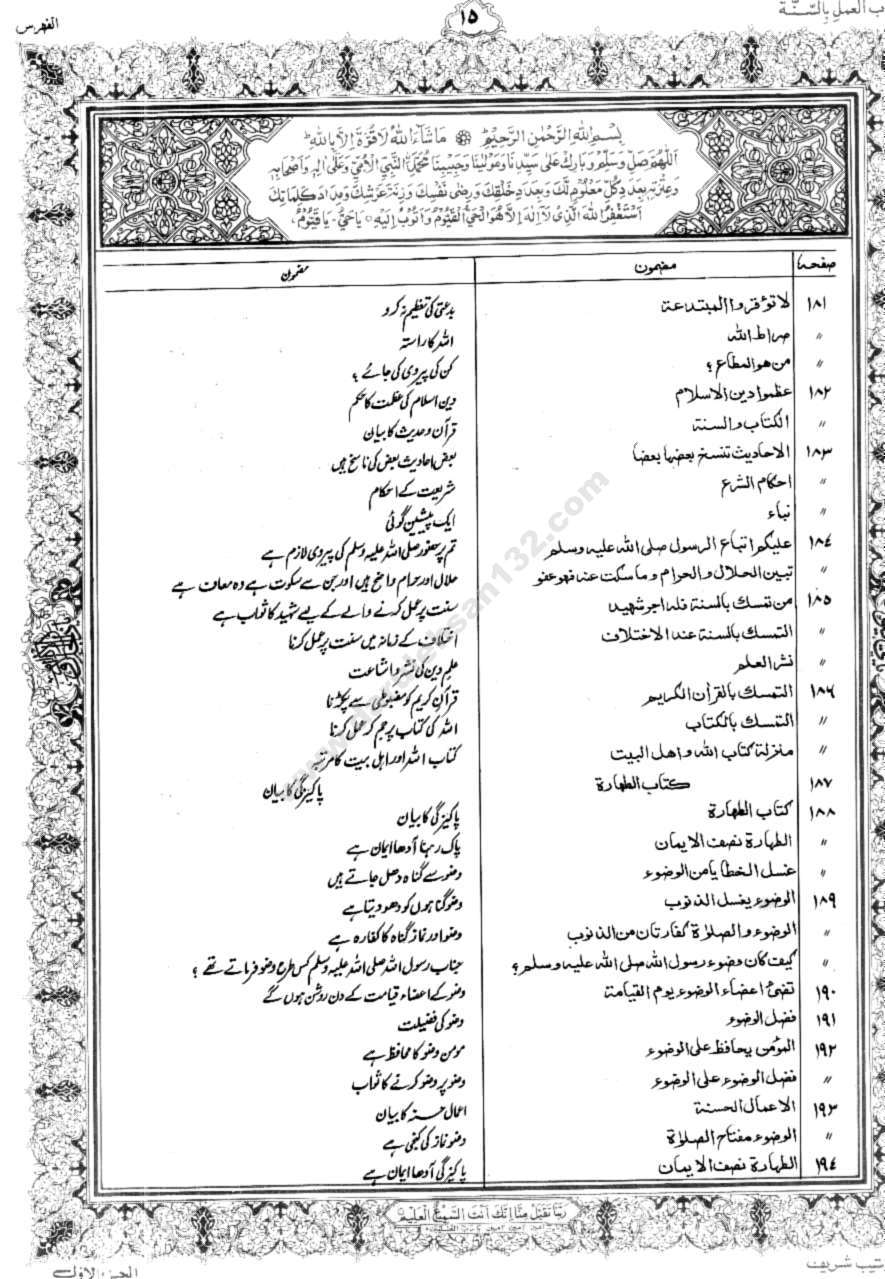 ب العمل بالسّنّة
١٥
الفهرس
بِسْمِ اللهِ الرَّحْمٰنِ الرَّحِيْمِ ۞ مَاشَآءَ اللهُ لَا قُوَّةَ اِلَّا بِاللهِ
اَللّٰهُمَّ صَلِّ وَسَلِّمْ وَبَارِكْ عَلٰى سَيِّدِنَا وَمَوْلٰينَا وَحَبِيْبِنَا مُحَمَّدِنِ النَّبِيِّ الْاُمِّيِّ وَعَلٰى اٰلِهٖ وَاَصْحَابِهٖ
وَعِتْرَتِهٖ بِعَدَدِ كُلِّ مَعْلُوْمٍ لَّكَ وَبِعَدَدِ خَلْقِكَ وَرِضٰى نَفْسِكَ وَزِنَةِ عَرْشِكَ وَمِدَادِ كَلِمَاتِكَ
اَسْتَغْفِرُ اللهَ الَّذِىْ لَآ اِلٰهَ اِلَّا هُوَ الْحَىُّ الْقَيُّوْمُ وَاَتُوْبُ اِلَيْهِ يَا حَىُّ يَا قَيُّوْمُ
صفحہ مضمون مضمون
١٨١ لا توقروا المبتدعة بدعتی کی تعظیم نہ کرو
〃 صراط الله اللہ کا راستہ
〃 من هو المطاع؟ کن کی پیروی کی جائے؟
١٨٢ عظموا دين الاسلام دین اسلام کی عظمت کا حکم
〃 الكتاب والسنة قرآن و حدیث کا بیان
١٨٣ الاحاديث تنسخ بعضها بعضا بعض احادیث بعض کی ناسخ ہیں
〃 احكام الشرع شریعت کے احکام
〃 نباء ایک پیشین گوئی
١٨٤ عليكم اتباع الرسول صلى الله عليه وسلم تم پر حضور صلی اللہ علیہ وسلم کی پیروی لازم ہے
〃 تبين الحلال والحرام وما سكت عنه فهو عفو حلال اور حرام واضح ہیں اور جن سے سکوت ہے وہ معاف ہے
١٨٥ من تمسك بالسنة فله اجر شهيد سنت پر عمل کرنے والے کے لیے شہید کا ثواب ہے
〃 التمسك بالسنة عند الاختلاف اختلاف کے زمانہ میں سنت پر عمل کرنا
〃 نشر العلم علم دین کی نشر و اشاعت
١٨٦ التمسك بالقرأن الكريم قرآن کریم کو مضبوطی سے پکڑنا
〃 التمسك بالكتاب اللہ کی کتاب پر جم کر عمل کرنا
〃 منزلة كتاب الله و اهل البيت کتاب اللہ اور اہل بیت کا مرتبہ
١٨٧ كتاب الطهارة پاکیزگی کا بیان
١٨٨ كتاب الطهارة پاکیزگی کا بیان
〃 الطهارة نصف الايمان پاک رہنا آدھا ایمان ہے
〃 غسل الخطايا من الوضوء وضو سے گناہ دھل جاتے ہیں
١٨٩ الوضوء يغسل الذنوب وضو گناہوں کو دھو دیتا ہے
〃 الوضوء والصلاة كفارتان من الذنوب وضو اور نماز گناہ کا کفارہ ہے
〃 كيف كان وضوء رسول الله صلى الله عليه وسلم؟ جناب رسول اللہ صلی اللہ علیہ وسلم کس طرح وضو فرماتے تھے؟
١٩٠ تضئ اعضاء الوضوء يوم القيامة وضو کے اعضاء قیامت کے دن روشن ہوں گے
١٩١ فضل الوضوء وضو کی فضیلت
١٩٢ المؤمن يحافظ على الوضوء مومن وضو کا محافظ ہے
〃 فضل الوضوء على الوضوء وضو پر وضو کرنے کا ثواب
١٩٣ الاعمال الحسنة اعمال حسنہ کا بیان
〃 الوضوء مفتاح الصلاة وضو نماز کی کنجی ہے
١٩٤ الطهارة نصف الايمان پاکیزگی آدھا ایمان ہے
ربنا تقبل منا انك انت السميع العليم
تيب شريف
الجزء الاول